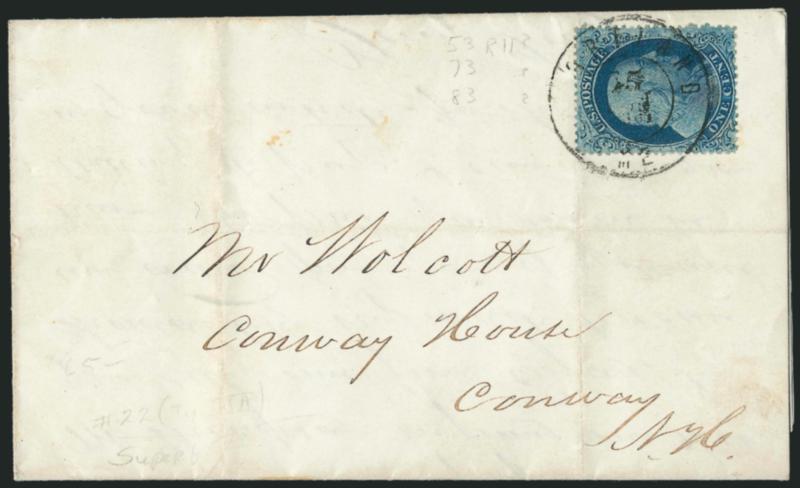 53 R11
73
83
U.S. POSTAGE
ONE CENT
PORTLAND
ME
Mr Wolcott
Conway House
Conway
N.H.
25-
#22 (
Superb